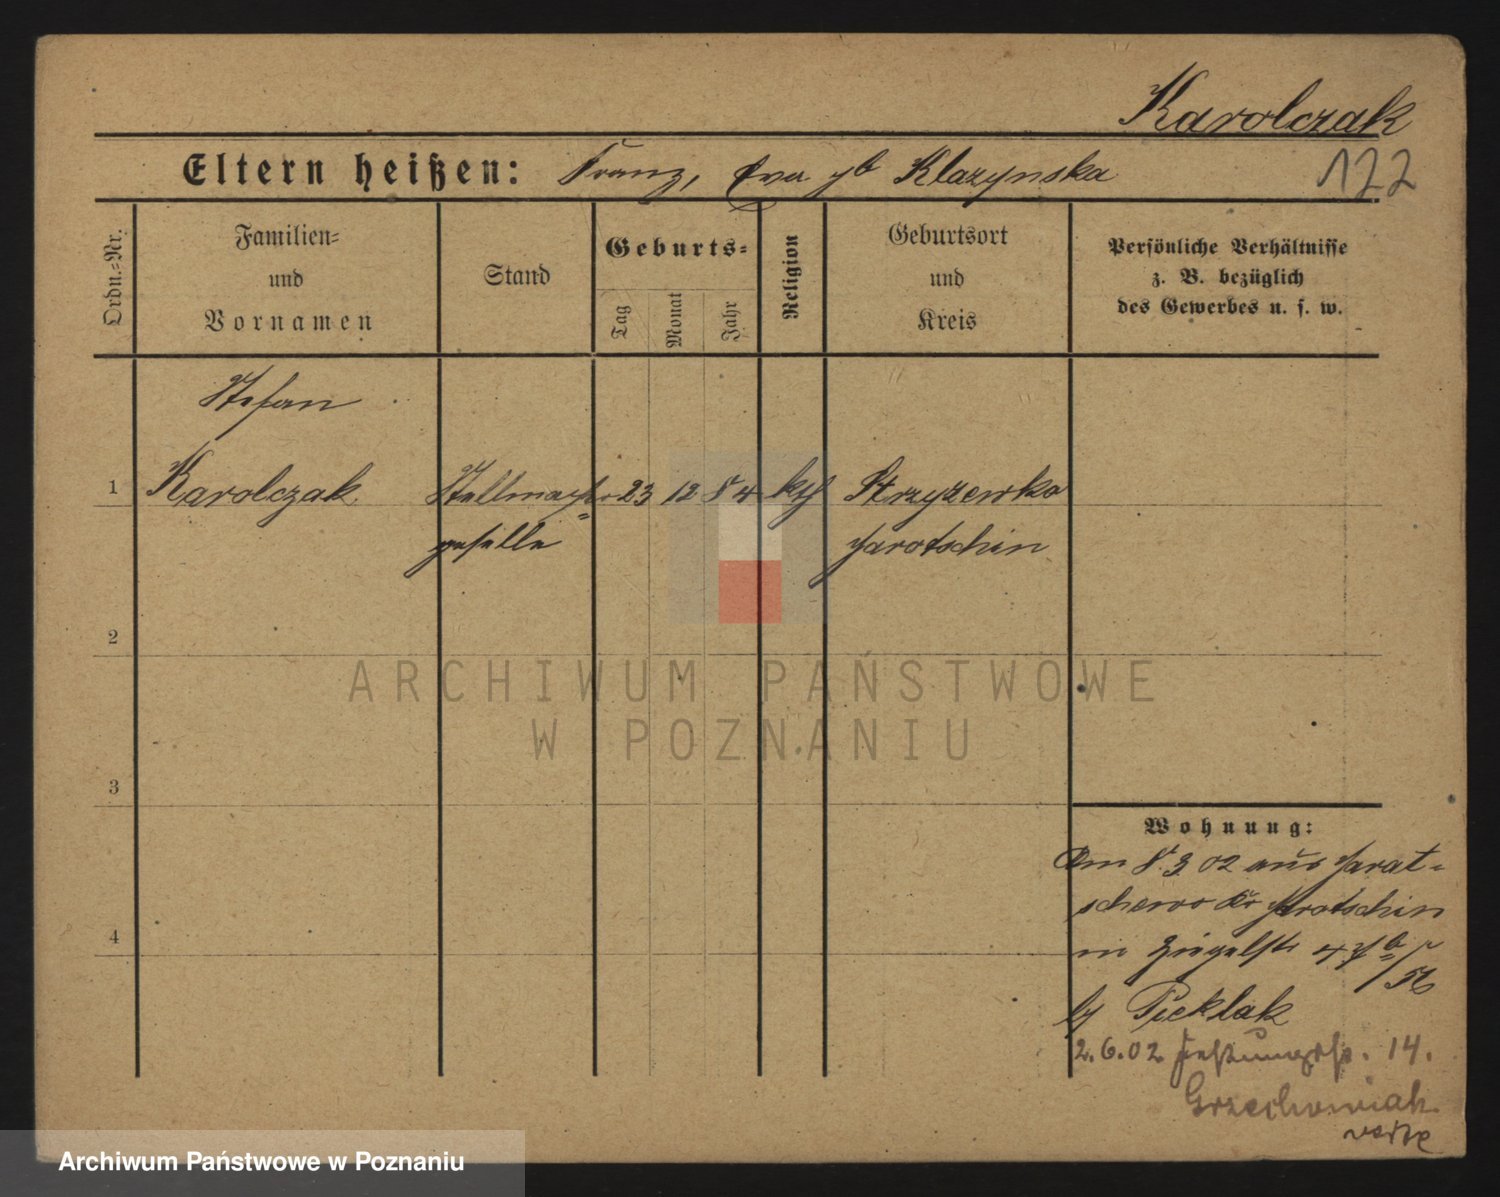 Karolczak
Eltern heißen: Franz, Eva gb Klazynska
122
Ordn.=Nr.
Familien=
und
Vornamen
Stand
Geburts=
Tag
Monat
Jahr
Religion
Geburtsort
und
Kreis
Persönliche Verhältnisse
z. B. bezüglich
des Gewerbes u. s. w.
Stefan
1 Karolczak Stellmacher= 23 12 84 kth Strzyzewko
geselle Jarotschin
2
3
4
ARCHIWUM PAŃSTWOWE
W POZNANIU
Wohnung:
Am 8.3 02 aus Jarat=
schewo Kr Jarotschin
in Ziegelstr
by Pieklak
2.6.02 14.
Grzechowiak
Archiwum Państwowe w Poznaniu